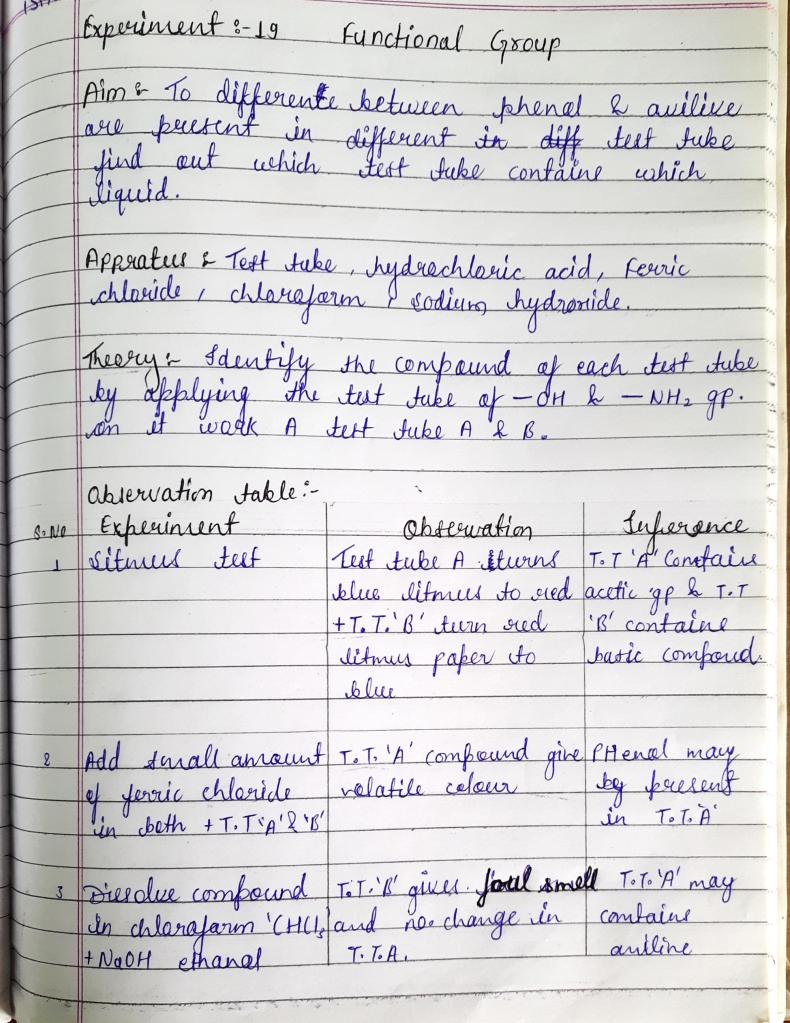 Experiment :- 19 Functional Group
Aim :- To differente between phenol & aniline
are present in different in diff test tube
find out which test tube contains which
liquid.
Appratus :- Test tube, hydrochloric acid, Ferric
chloride, chloroform, sodium hydroxide.
Theory :- Identify the compound of each test tube
by applying the test tube of -OH & -NH₂ gp.
on it work A test tube A & B.
Observation table :-
S.No Experiment Observation Inference
1 Litmus test Test tube A turns T.T 'A' Contains
blue litmus to red acetic gp & T.T
+ T.T. 'B' turn red 'B' contains
litmus paper to basic compoud.
blue
2 Add small amount T.T. 'A' compound give PHenol may
of ferric chloride volatile colour by present
in both + T.T 'A' & 'B' in T.T. A'
3 Dissolve compound T.T. 'B' gives foul smell T.T. 'A' may
in chloroform 'CHCl₃ and no change in contains
+ NaOH ethanol T.T.A. aniline